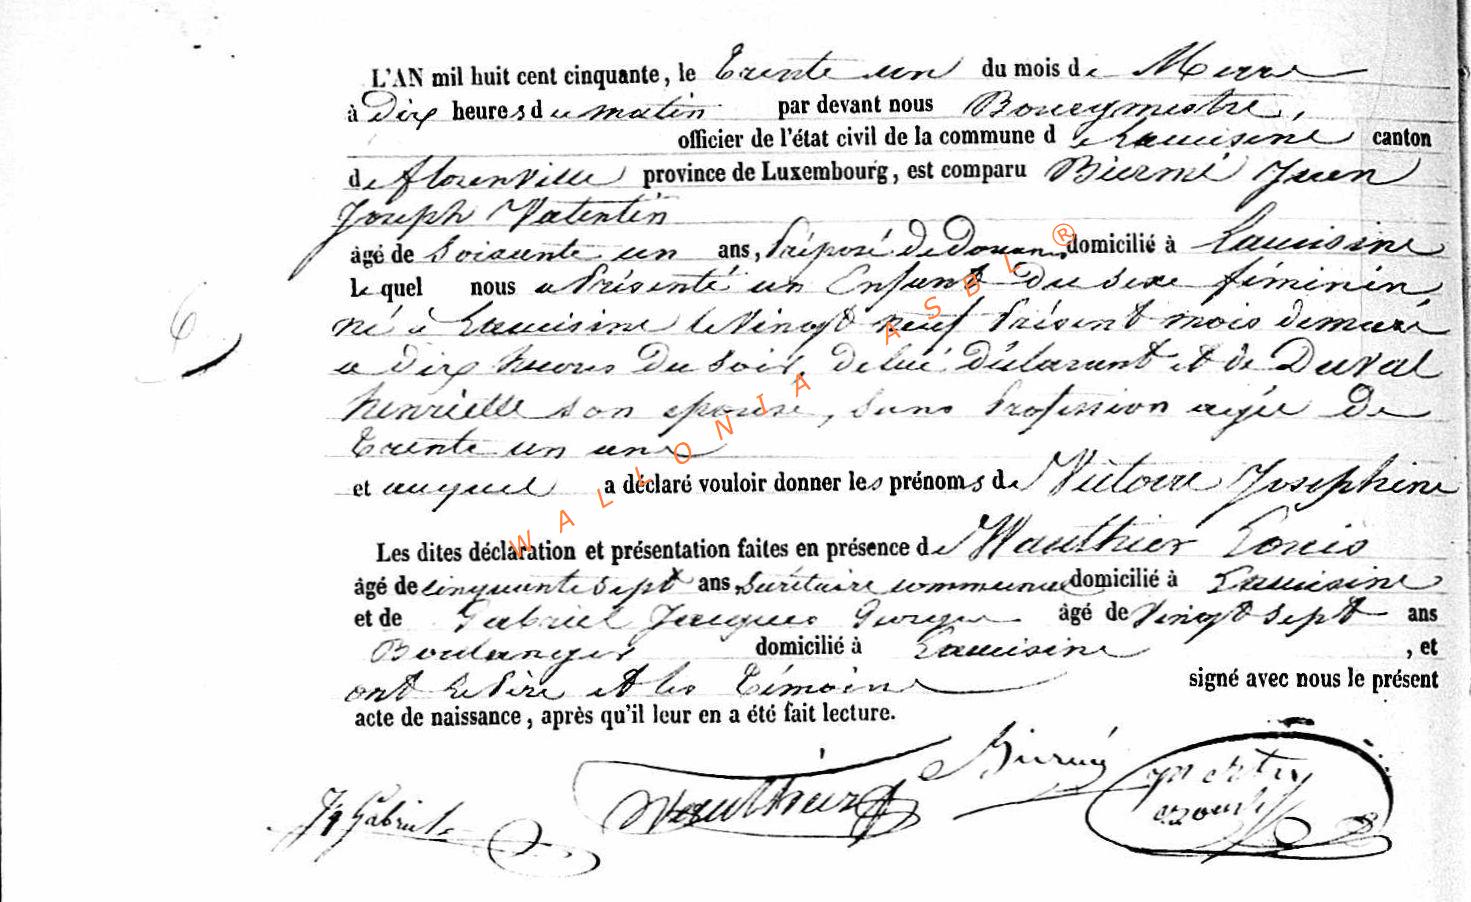 L'AN mil huit cent cinquante, le Trente un du mois de Marse
à Dix heures du matin par devant nous Bourgmestre,
officier de l'état civil de la commune de Lacuisine canton
de florenville province de Luxembourg, est comparu Biermé Jean
Joseph Valentin
âgé de Soixante un ans, Préposé de Douane domicilié à Lacuisine
lequel nous a Présenté un Enfant du sexe féminin,
né à Lacuisine le Vingt neuf Présent mois de mars
a dix heures Du Soir, de lui Déclarant et de Duval
henriette son epouse, sans Profession agée De
Trente un ans
et auquel a déclaré vouloir donner les prénoms de Victoire Josephine
Les dites déclaration et présentation faites en présence de Wauthier Louis
âgé de cinquante sept ans, Secrétaire communal domicilié à Lacuisine
et de Gabriel Jacques George âgé de Vingt sept ans
Boulanger domicilié à Lacuisine, et
ont le Père et les Témoins signé avec nous le présent
acte de naissance, après qu'il leur en a été fait lecture.
6
Jq Gabriel Wauthier Biermé
WALLONIA ASBL ®